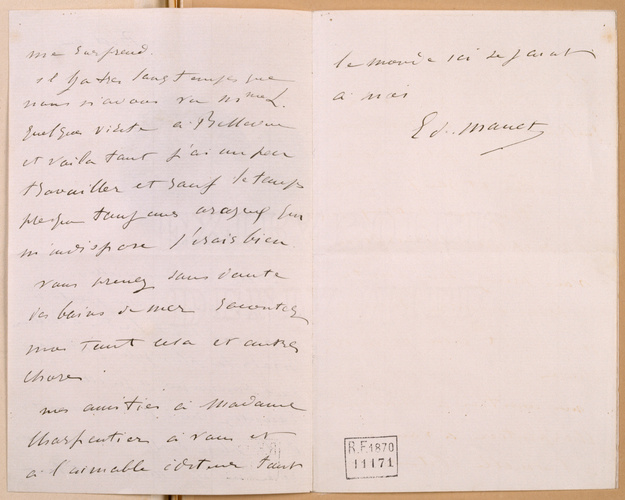 me surprend.
il y a très longtemps que
nous n'avons vu M
quelques visites à Bellevue
et voilà tout j'ai un peu
travailler et sauf le temps
presque toujours orageux qui
m'indispose j'irais bien.
vous prenez sans doute
des bains de mer racontez
moi tout cela et autres
choses
mes amitiés à Madame
Charpentier à vous et
à l'aimable éditeur tout
le monde ici se joint
à moi
Ed. Manet
R.F. 1870
11171